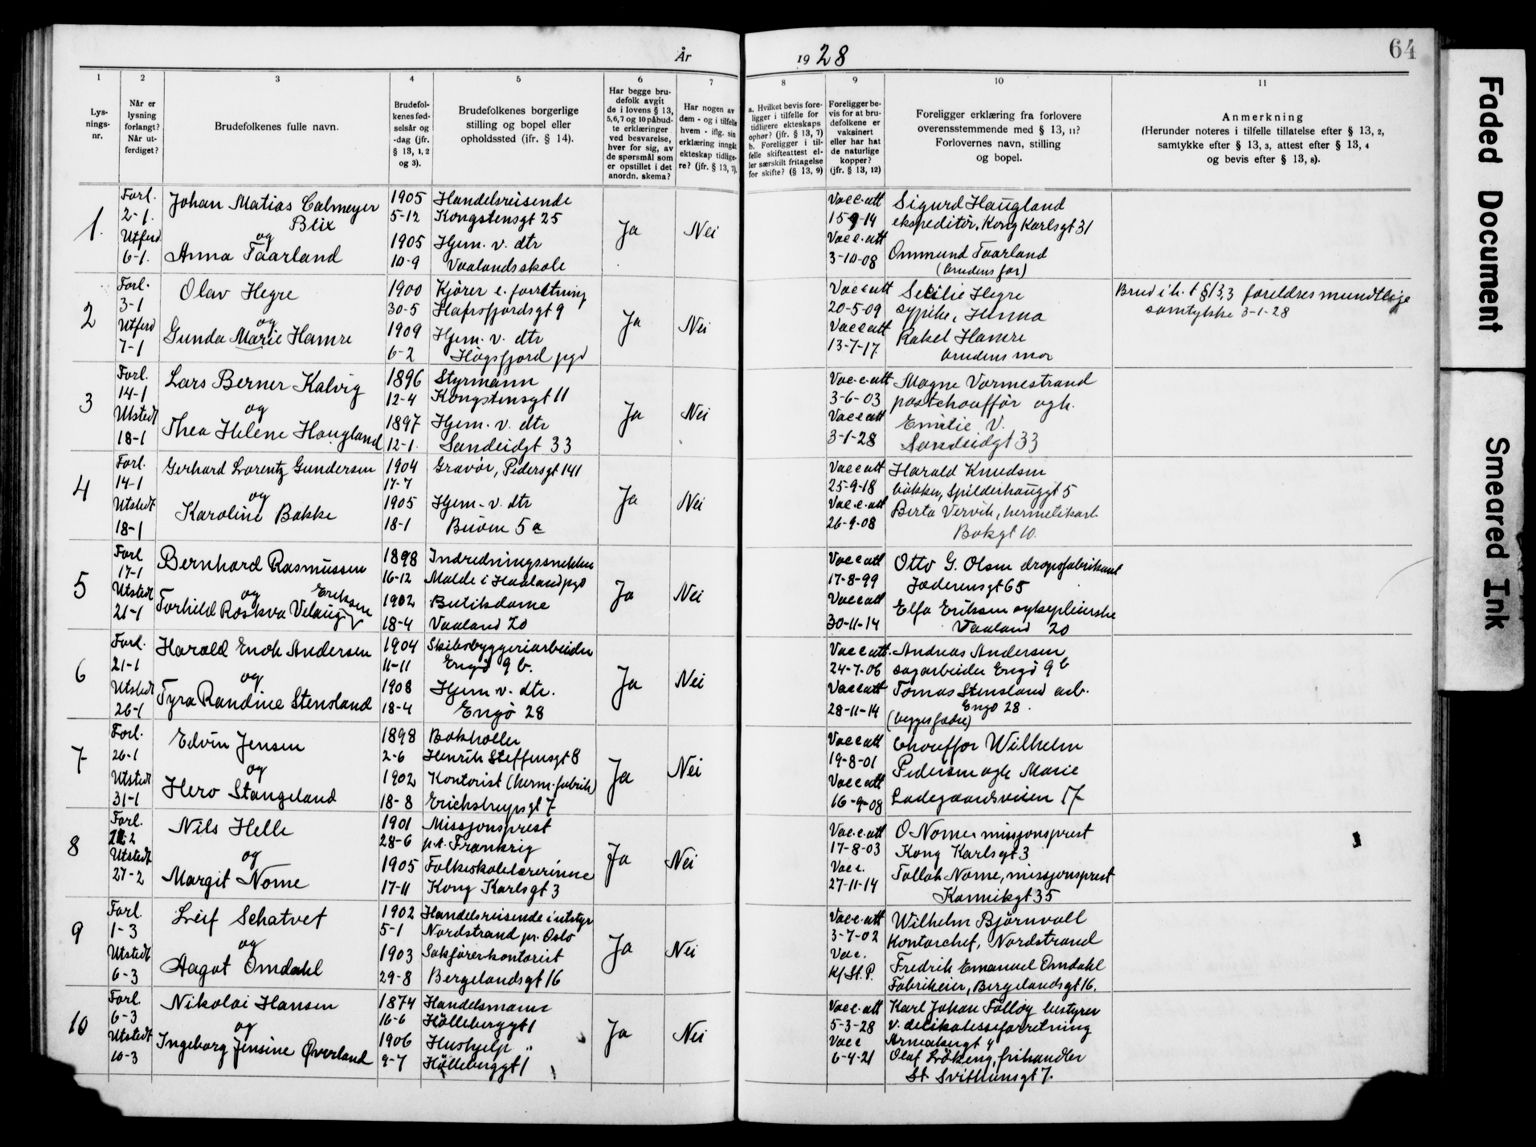 År 1928
64
1 2 3 4 5 6 7 8 9 10 11
Lys-
nings-
nr.
Når er
lysning
forlangt?
Når ut-
ferdiget?
Brudefolkenes fulle navn.
Brudefol-
kenes fød-
selsår og
-dag (jfr.
§ 13, 1, 2
og 3).
Brudefolkenes borgerlige
stilling og bopel eller
opholdssted (ifr. § 14).
Har begge bru-
defolk avgit
de i lovens § 13,
5,6,7 og 10 påbud-
te erklæringer
ved besvarelse,
hver for sig, av
de spørsmål som
er opstillet i det
anordn. skema?
Har nogen av
dem - og i tilfelle
hvem - iflg. sin
erklæring inngå
ekteskap tidlige-
re? (jfr. § 13, 7).
a. Hvilket bevis fore-
ligger i tilfelle for
tidligere ekteskaps
ophør? (jfr. § 13, 7)
b. Foreligger i til-
felle skifteattest el-
ler særskilt fritagelse
for skifte? (§ 13, 9)
Foreligger be-
vis for at bru-
defolkene er
vaksinert
eller har hatt
de naturlige
kopper?
(jfr. § 13, 12)
Foreligger erklæring fra forlovere
overensstemmende med § 13, 11?
Forlovernes navn, stilling
og bopel.
Anmerkning
(Herunder noteres i tilfelle tillatelse efter § 13, 2,
samtykke efter § 13, 3, attest efter § 13, 4
og bevis efter § 13, 8).
1.
Forl.
2-1.
Utferd
6-1.
Johan Matias Calmeyer
Blix
og
Anna Taarland
1905
5-12
1905
10-9
Handelsreisende
Kongstensgt 25
Hjem. v. dtr
Vaalandsskole
Ja
Nei
Vacc.att
15-9-14
Vacc.att
3-10-08
Sigurd Haugland
ekspeditør, Kong Karlsgt 31
Ommund Taarland
(brudens far)
2
Forl.
3-1
Utferd
7-1
Olav Hegre
og
Gunda Marie Hamre
1900
30-5
1909
6-2
Kjører e. forretning
Hafrsfjordsgt 9
Hjem. v. dtr
Høgsfjord pgd
Ja
Nei
Vaccatt
20-5-09
Vaccatt
13-7-17
Secilie Hegre
sypike, Hinna
Rakel Hamre
brudens mor
Brud i h. t § 13,3 foreldres mundtlige
samtykke 3-1-28
3
Forl.
14-1
Utstedt
18-1
Lars Berner Kalvig
og
Thea Helene Haugland
1896
12-4
1897
12-1.
Styrmann
Kongstensgt 11
Hjem. v. dtr
Sandeidgt 33
Ja
Nei
Vacc.att
3-6-03
Vaccatt
3-1-28
Magne Varmestrand
postchauffør ogh.
Emilie V.
Sandeidgt 33
4
Forl.
14-1
Utstedt
18-1
Gerhard Lorentz Gundersen
og
Karoline Bakke
1904
17-7
1905
18-1
Gravør, Pedersgt 141
Hjem. v. dtr
Buøen 5 a
Ja
Nei
Vaccatt
25-9-18
Vacc.att
26-9-08
Harald Knudsen
bøkker, Spilderhauggt 5
Berta Vervik, hermetikarb
Bakgt 10.
5
Forl
17-1
Utstedt
21-1
Bernhard Rasmussen
og Eriksen
Torhild Roskva Velaug
1898
16-12
1902
18-4
Indredningssnekker
Malde i Haaland pgd
Butikdame
Vaaland 20
Ja
Nei
Vacc att
17-8-99
Vaccatt
30-11-14
Otto G. Olsen dropsfabrikant
Jæderensgt 65
Elfa Eriksen sykepleierske
Vaaland 20
6
Forl.
21-1
Utstedt
26-1
Harald Enok Andersen
og
Tyra Randine Stensland
1904
11-11
1908
18-4
Skibsbyggeriarbeider
Engø 9 b.
Hjem v. dtr.
Engø 28
Ja
Nei
Vacc att
24-7-06
Vaccatt
28-11-14
Andreas Andersen
sagarbeider Engø 9 b
Tomas Stensland arb.
Engø 28.
(begges fædre)
7
Forl.
26-1
Utstedt
31-1
Edvin Jensen
og
Hero Stangeland
1898
2-6
1902
18-8
Bokholder
Henrik Steffensgt 8
Kontorist (herm.fabrik)
Erichstrupsgt 7
Ja
Nei
Vacc att
19-8-01
Vaccatt
16-9-08
Chauffør Wilhelm
Pedersen ogh Marie
Ladegaardsveien 17
8
Forl.
Utstedt
27-2
Nils Helle
og
Margit Nome
1901
28-6
1905
17-11
Missjonsprest
p.t. Frankrig
Folkeskolelærerinne
Kong Karlsgt 3
Ja
Nei
Vacc.att
17-8-03
Vacc.
27-11-14
O Nome missjonsprest
Kong Karlsgt 3
Tollak Nome, missjonsprest
Kannikgt 35
9
Forl
1-3
Utstedt
6-3
Leif Schatvet
og
Aagot Omdahl
1902
5-1
1903
29-8
Handelsreisende i utstyr
Nordstrand pr. Oslo
Sakførerkontorist
Bergelandsgt 16
Ja
Nei
Vacc.att
3-7-02
Vac.
Kf St. P.
Wilhelm Bjørnvall
Kontorchef, Nordstrand
Fredrik Emanuel Omdahl
Fabrikeier, Bergelandsgt 16.
10
Forl.
6-3
Utstedt
10-3
Nikolai Hansen
og
Ingeborg Jensine Øverland
1874
16-6
1906
9-7
Handelsmann
Hølleberggt 1
Hushjelp "
Hølleberggt 1
Ja
Nei
Vacc.att
5-3-28
Vacc
6-4-21
Karl Johan Tølløy bestyrer
v. delikatesseforretning
Arnebergt 4
Olaf Løkeng, frihandler
St Svithunsgt 7.
Faded Document
Smeared Ink